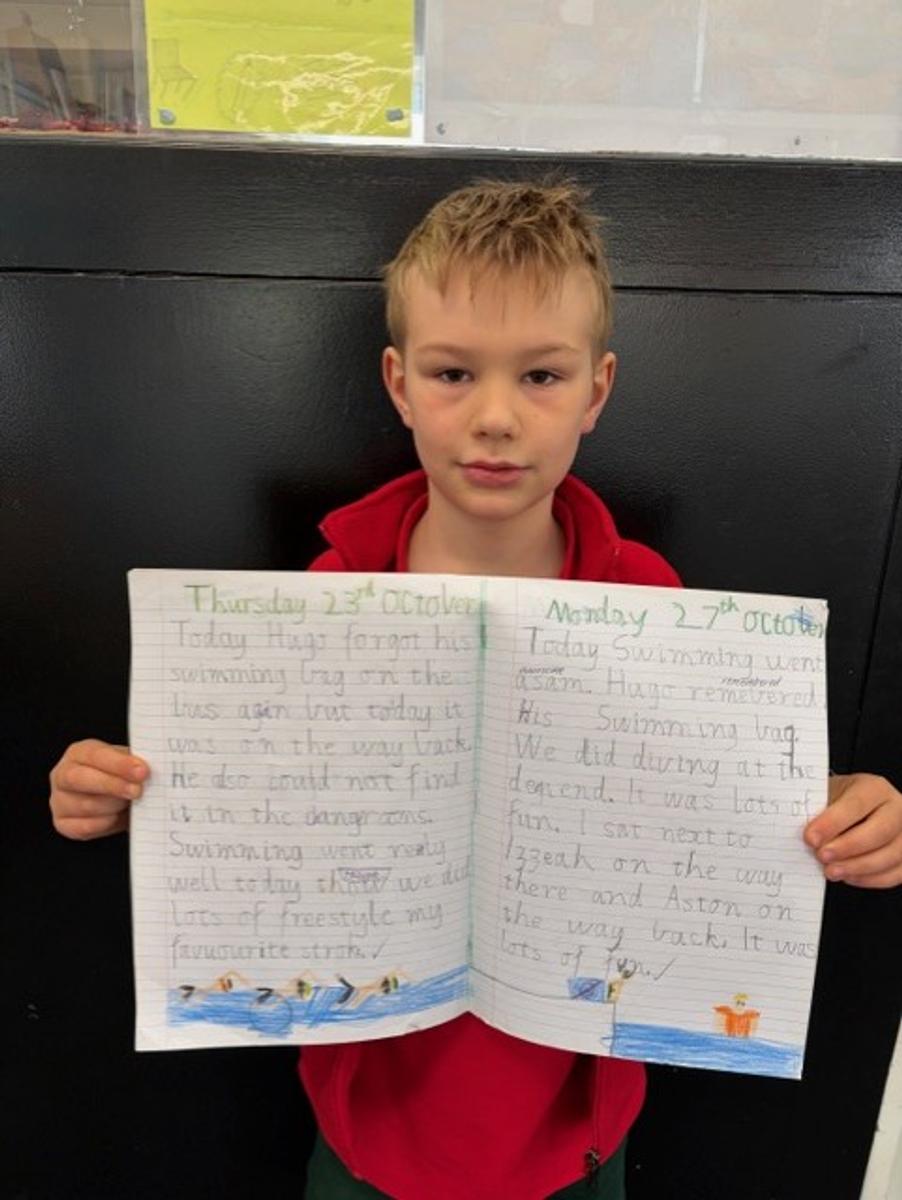 Thursday 23rd October
Today Hugo forgot his
swimming bag on the
bus agin but today it
was on the way back.
He also could not find
it in the changrooms.
Swimming went realy
well today we did
lots of freestyle my
favuourite strok. ✓
Monday 27th October
Today Swimming went
awesome remembered
asam. Hugo remevered
His Swimming bag.
We did diving at the
depend. It was lots of
fun. I sat next to
Izzeah on the way
there and Aston on
the way back. It was
lots of fun. ✓